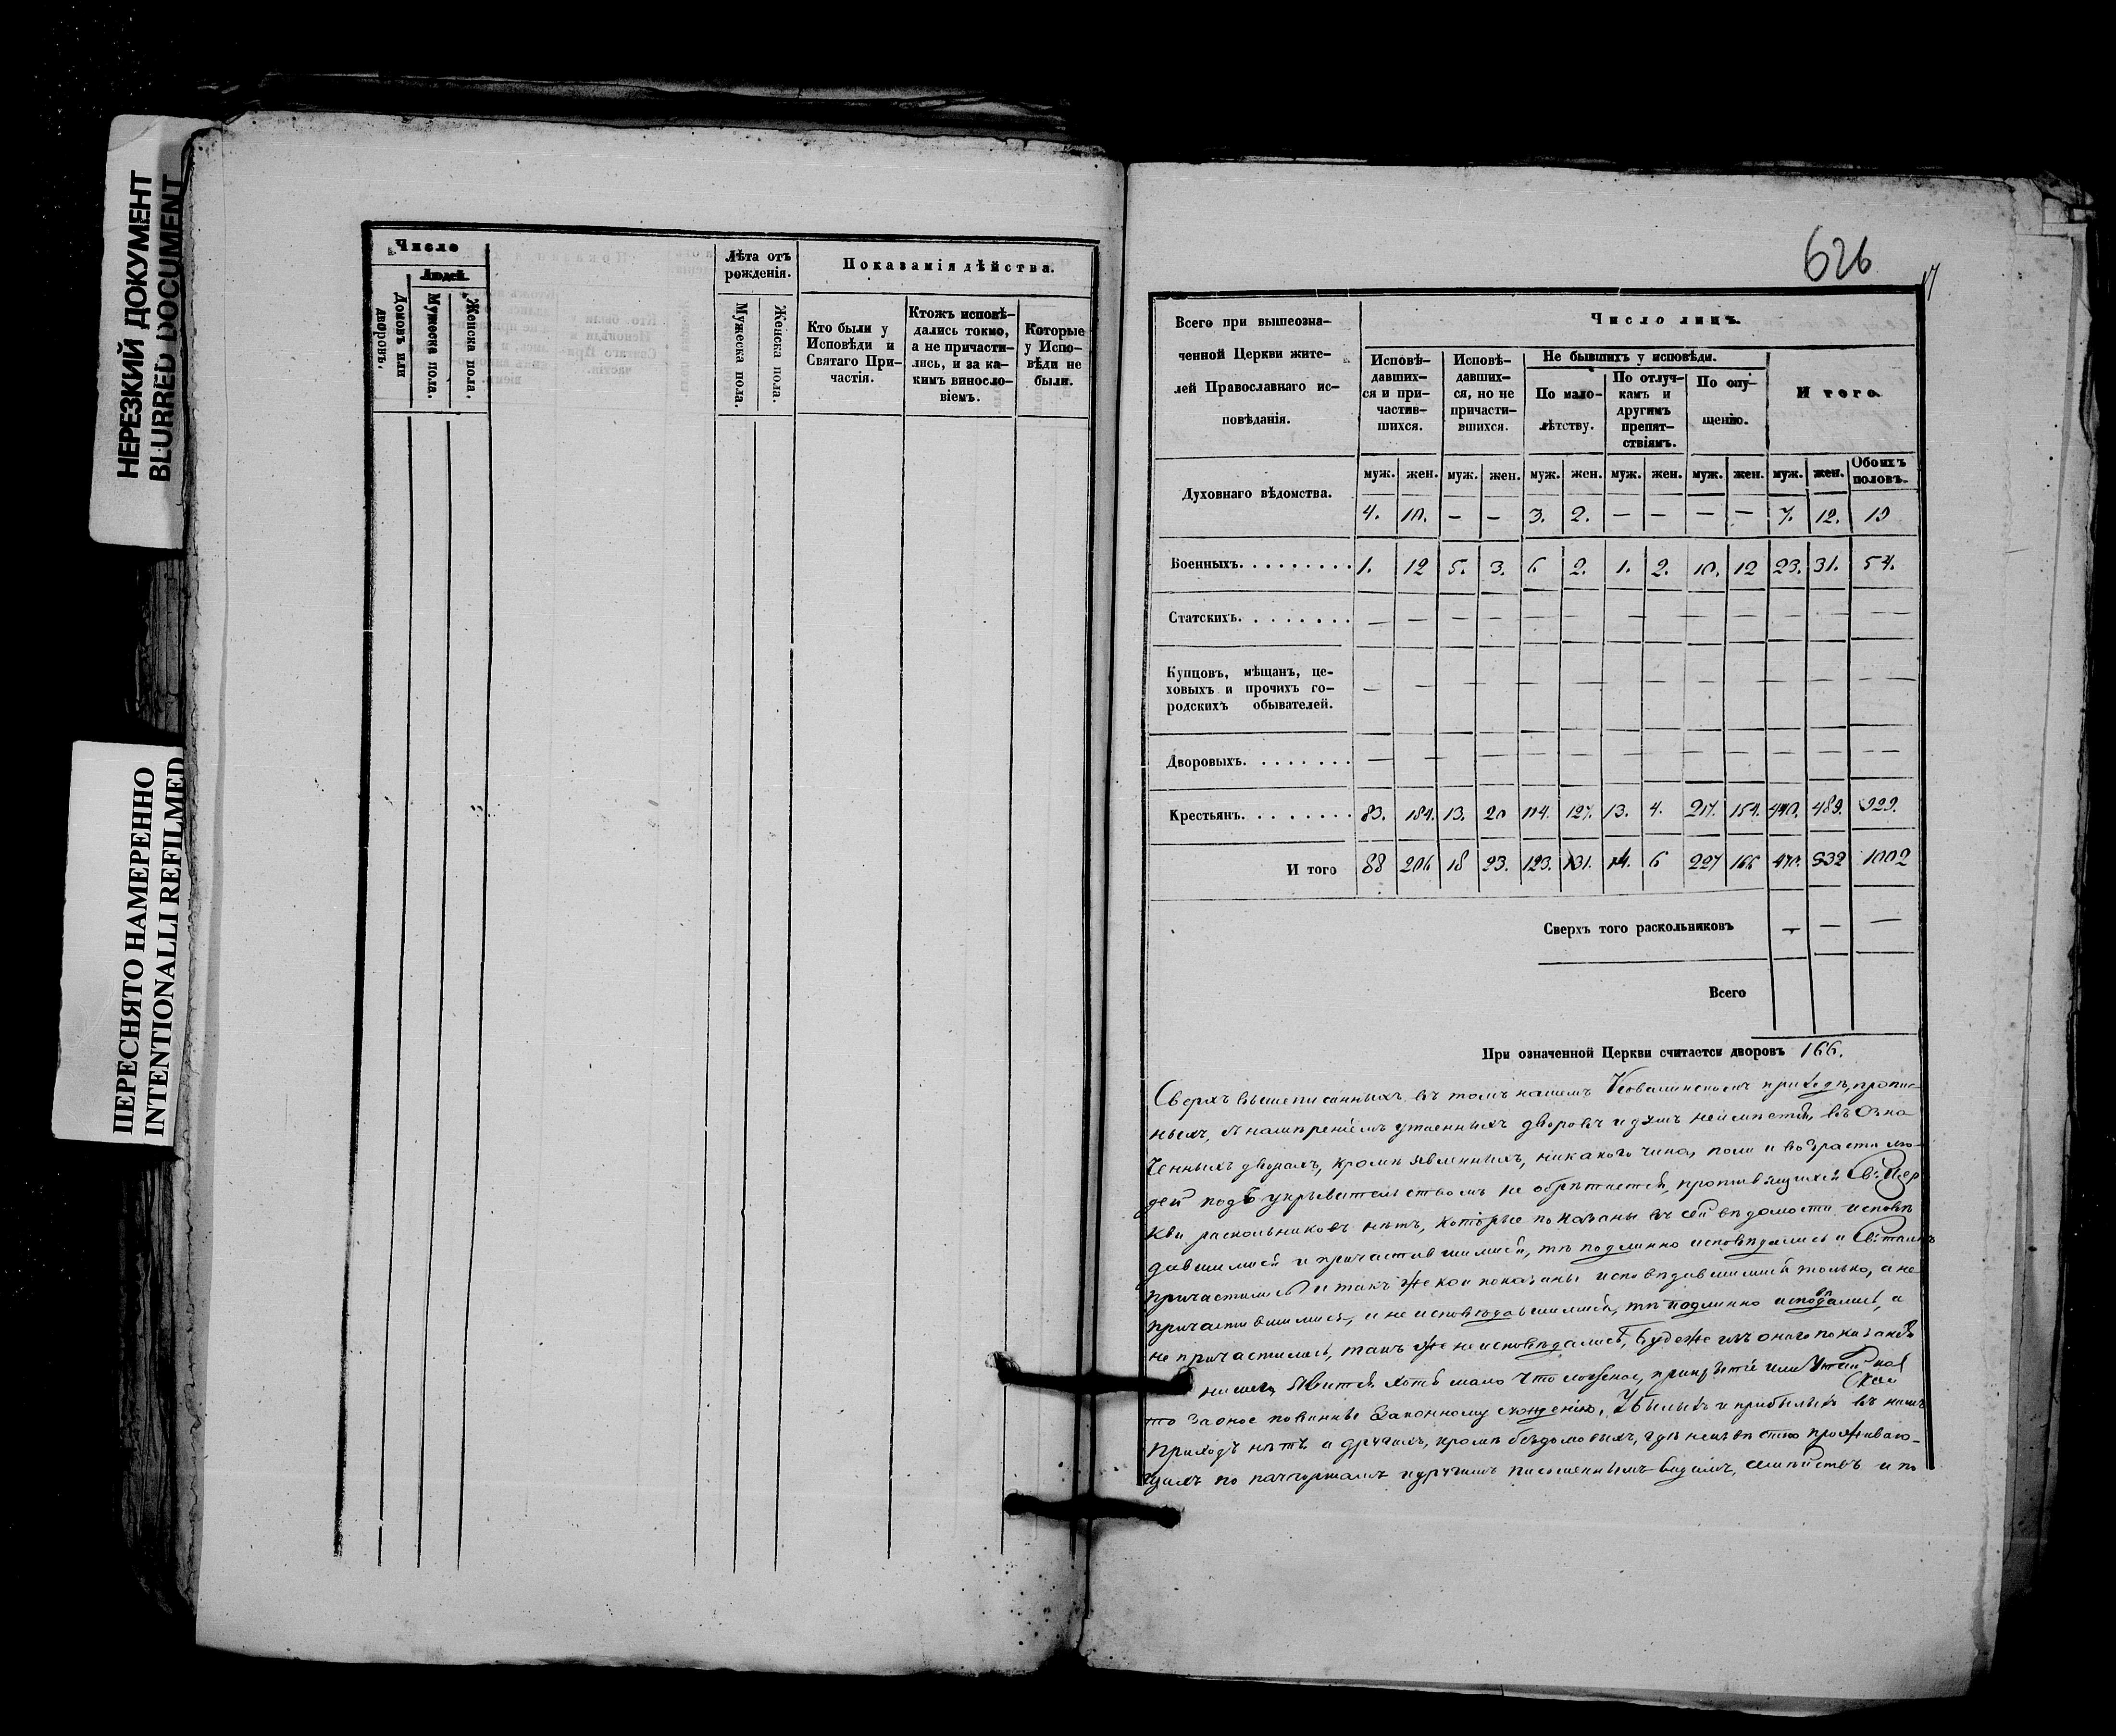 НЕРЕЗКИЙ ДОКУМЕНТ
BLURRED DOCUMENT
ПЕРЕСНЯТО НАМЕРЕННО
INTENTIONALLI REFILMED
Число
Людей.
Домовъ или дворовъ.
Мужеска пола.
Женска пола.
Лѣта отъ рожденія.
Мужеска пола.
Женска пола.
Показанія дѣйства.
Кто были у Исповѣди и Святаго При-
частія.
Ктожъ исповѣ-
дались токмо,
а не причасти-
лись, и за ка-
кимъ винosло-
віемъ.
Которые
у Испо-
вѣди не
были.
626
Всего при вышеозна-
ченной Церкви жите-
лей Православнаго ис-
повѣданія.
Число лицъ.
Исповѣ-
давших-
ся и при-
частив-
шихся.
Исповѣ-
давших-
ся, но не
причасти-
вшихся.
Не бывшихъ у исповѣди.
По мало-
лѣтству.
По отлуч-
камъ и
другимъ
препят-
ствіямъ.
По опу-
щенію.
И того.
муж. жен. муж. жен. муж. жен. муж. жен. муж. жен. муж. жен. Обоихъ половъ.
Духовнаго вѣдомства. 4. 10. — — 3. 2. — — — — 7. 12. 19
Военныхъ. 1. 12 5. 3. 6 2. 1. 2. 10. 12 23. 31. 54.
Статскихъ. — — — — — — — — — — — — — —
Купцовъ, мѣщанъ, це-
ховыхъ и прочихъ го-
родскихъ обывателей. — — — — — — — — — — — — — —
Дворовыхъ. — — — — — — — — — — — — —
Крестьянъ. 83. 184. 13. 20 114. 127. 13. 4. 217. 154. 440. 489. 929.
И того 88 206 18 23. 123. 131. 14. 6 227 166 470. 532 1002
Сверхъ того раскольниковъ — — —
Всего
При означенной Церкви считается дворовъ 166.
Сверхъ вышеписанныхъ въ томъ нашемъ приходѣ, пропис-
ныхъ, съ намѣреніемъ утаенныхъ дворовъ и душъ неимѣется, въ Озна
ченныхъ дворахъ, кромѣ явленныхъ, никакого чина, пола и возраста лю-
дей подъ укрывательствомъ не обрѣтается, противящихся Св: Цер
кви раскольниковъ нѣтъ, которые показаны въ сей вѣдомости исповѣ
давшимися и причастившимися, тѣ подлинно исповѣдались и Св: таинъ
причастились и также кои показаны исповѣдавшимися только, а не
причастившимися, и не исповѣдавшимися, тѣ подлинно исповѣдались, а
не причастились, также не исповѣдались, буде же изъ онаго показанія
нашего явится хотя мало что ложное, прикрытіе или
то за оное повинны Законному сужденію. Убылыхъ и прибылыхъ въ нашъ
приходъ нѣтъ а другихъ, кромѣ бездомовыхъ, гдѣ неизвѣстно проживаю-
щихъ по пашпортамъ и другимъ письменнымъ видамъ, семействъ и по